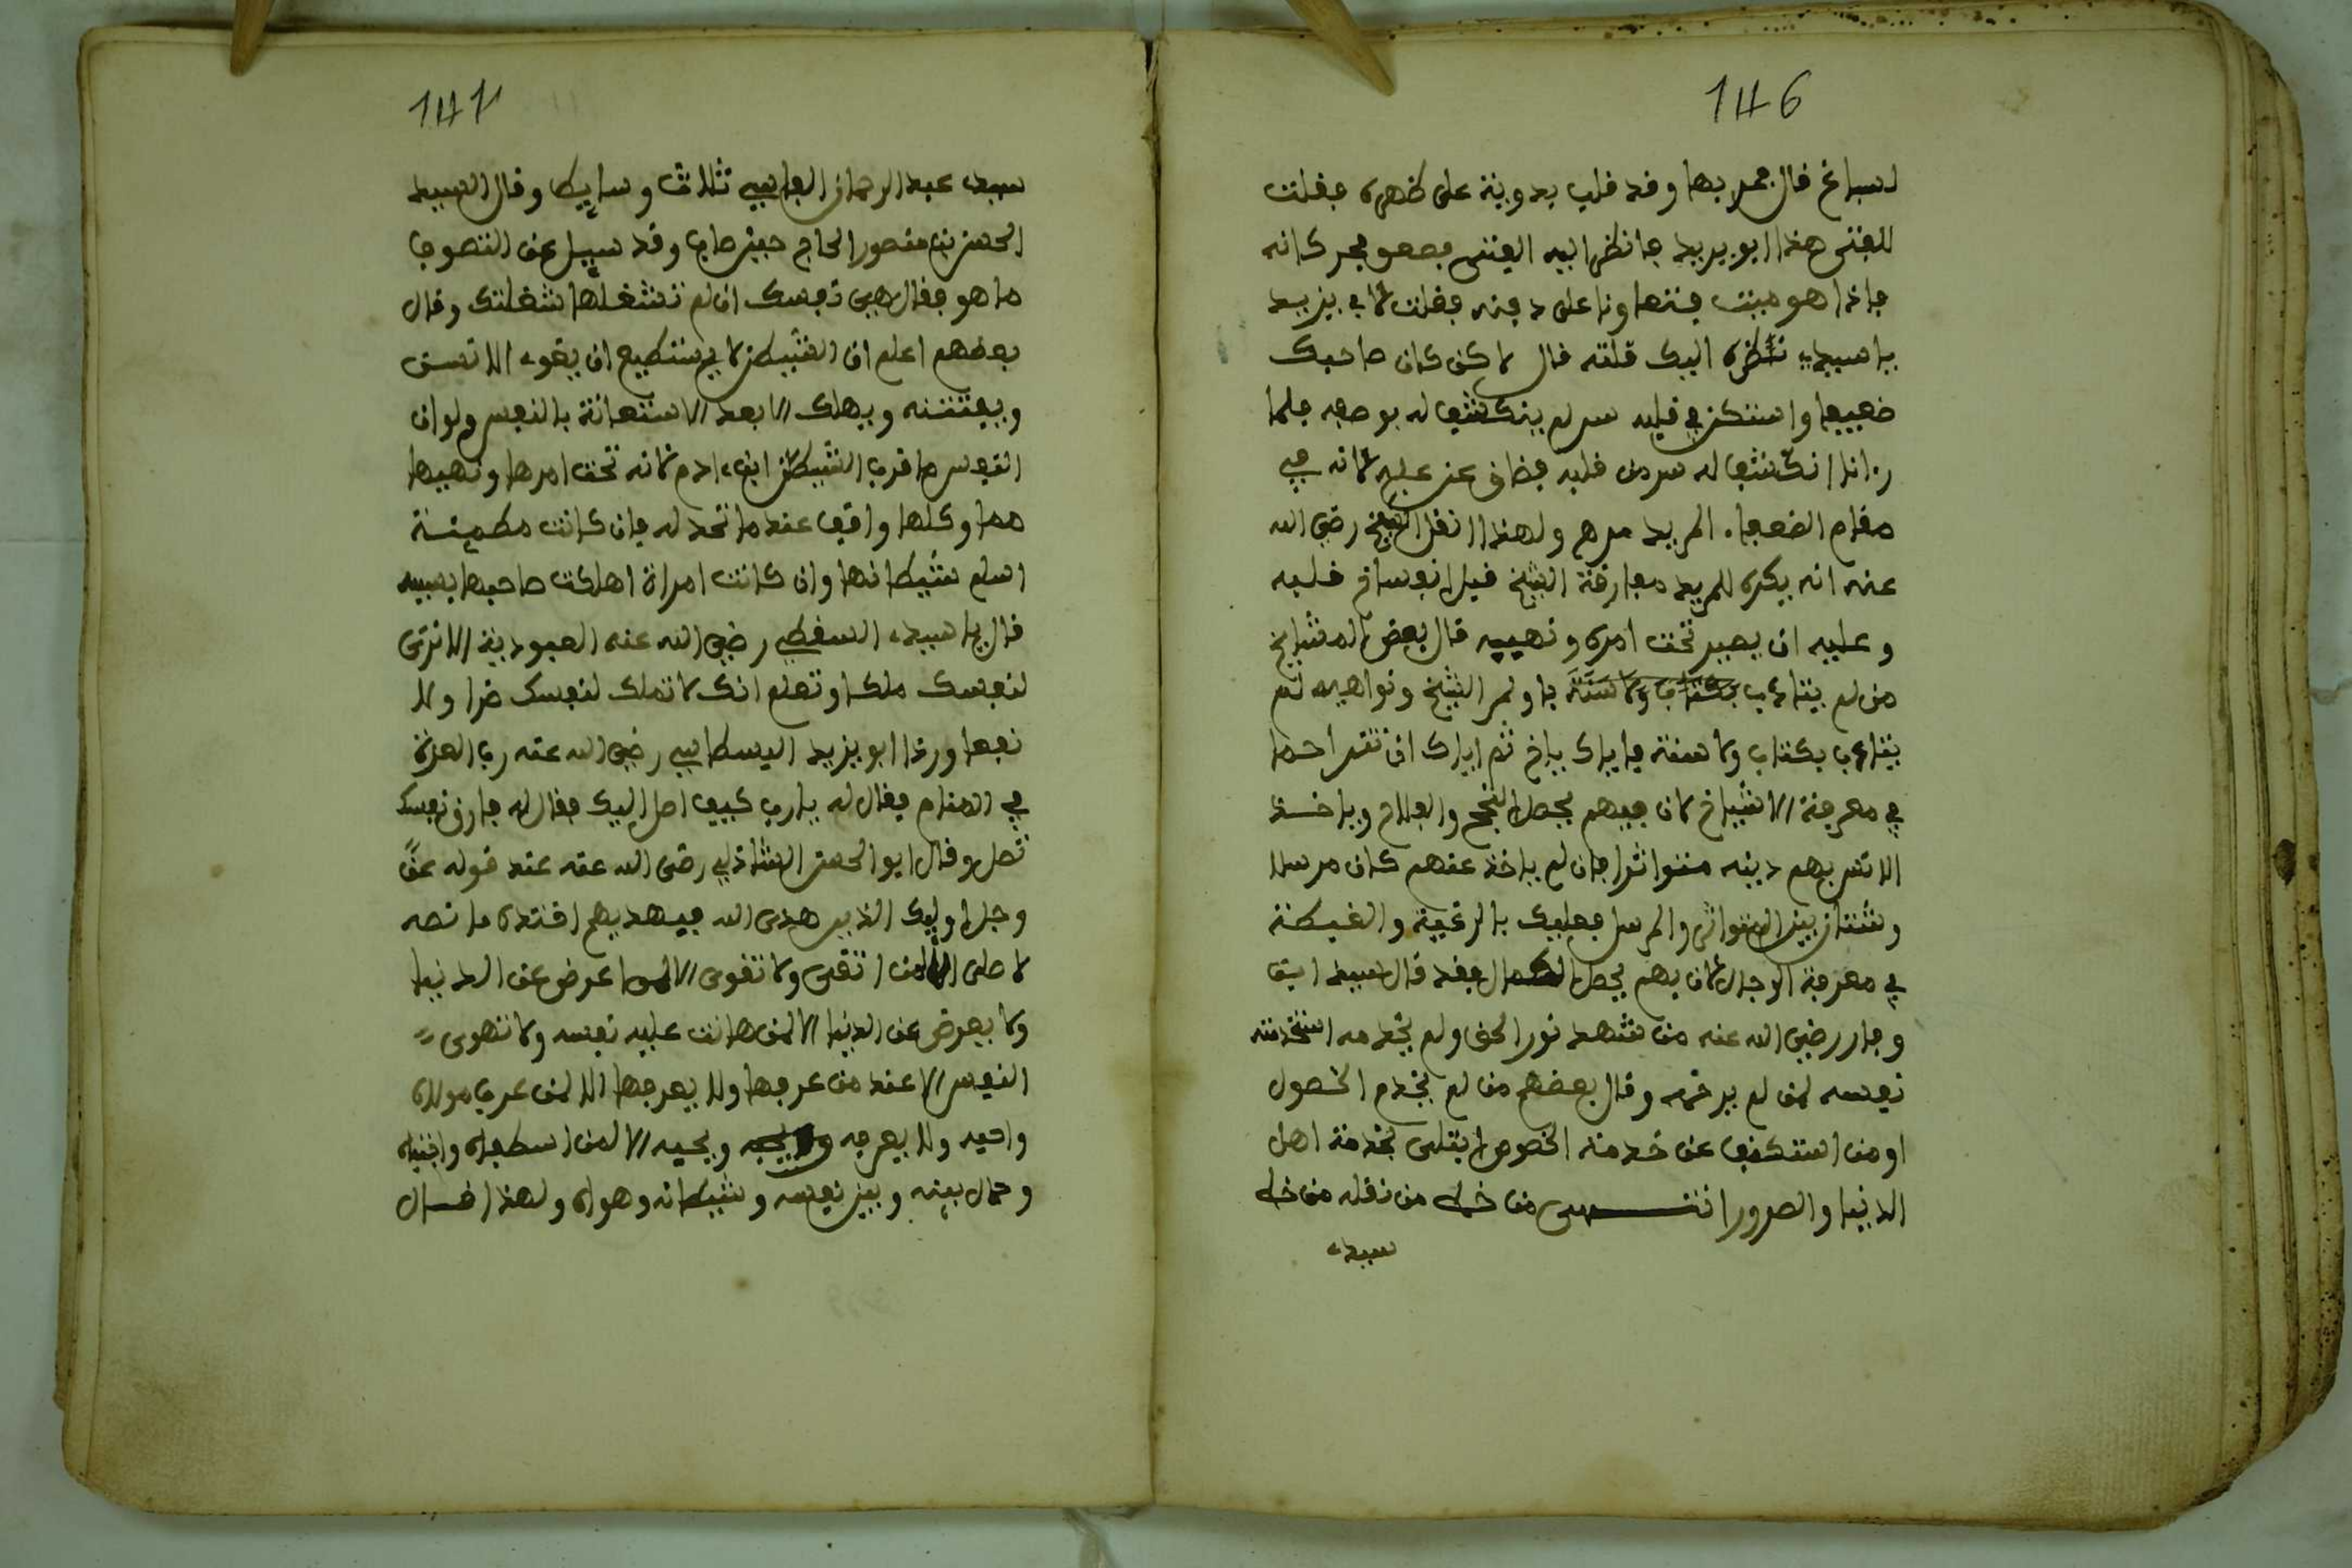 146
لسباع قال فمر بها وقد قلب بدوية على ظهره فقلت
للفتى هذا ابويزيد فانظر اليه الفتى فصعق فحركانه
فاذا هو ميت فتعاونا على دفنه فقلت لابي يزيد
يا سيدي نظره اليك قتلته قال لا كن كان صاحبك
ضعيفا واستكن في قلبه سر لم ينكشف له بوصفه فلما
رءانا انكشف له سر من قلبه فضاق عن عليه لانه في
مقام الضعفاء المريد مرهم ولهذا انقل الشيخ رضي الله
عنه انه يكره للمريد مفارقة الشيخ قبل انفساخ قلبه
و عليه ان يصبر تحت امره ونهييه قال بعض المشايخ
من لم يتادب باومر الشيخ ونواهيه لم
يتادب بكتاب ولا سنة فاياك ياخ ثم اياك ان تقر احدا
في معرفة الاشياخ لان فيهم يحصل النجح والفلاح وياخذ
الانسان بهم دينه متواترا فان لم ياخذ عنهم كان مرسلا
وشتان بين المتواتر والمرسل فعليك بالرغبة والغبطة
في معرفة الرجال لان بهم يحصل الكمال فقد قال سيد ابو
وفار رضي الله عنه من شهد نور الحق ولم يخدمه استخدمته
نفسه لمن لم يرحمه وقال بعضهم من لم يخدم الخصول
اومن استنكف عن خدمته الخصوص ابتلى بخدمة اهل
الدنيا والصرور انتهى من خط من نقله من خط
سيدي
147
سيدي عبد الرحمان الفاسي ثلاث وسايط وقال السيد
الحسن بن منصور الحاج حين صلب وقد سييل عن التصوف
ما هو فقال هي نفسك ان لم تشغلها شغلتك وقال
بعضهم اعلم ان الشيطن لا يستطيع ان يقوء الانسن
ويفتنه ويهلك الا بعد الاستعانة بالنفس ولو ان
النفس ما قرب الشيطن ابنء ادم لانه تحت امرها ونهيها
مما وكلها واقف عند ما تحد له فان كانت مطمينة
اسلم شيطانها وان كانت امراة اهلكت صاحبها بسيبه
قال يا سيدء السقطي رضي الله عنه العبودية الا ترى
لنفسك ملكا وتعلم انك لا تملك لنفسك ضرا ولا
نفعا ورءا ابو يزيد البسطامي رضي الله عنه رب العزة
في المنام فقال له يارب كيف اصل اليك فقال له فارق نفسك
تصل وقال ابو الحسن الشاذلي رضي الله عنه عند قوله عز
وجل اوليك الذين هدى الله فبهديهم اقتده ما نصه
لا صلى الا لمن اتقى ولا تقوى الا لمن اعرض عن الدنيا
ولا يعرض عن الدنيا الا لمن هانت عليه نفسه ولا تهون
النفس الا عند من عرفها ولا يعرفها الا لمن عرف مولاه
واحبه ولا يعرفه ويحبه الا لمن اصطفاه واجتباه
وحال بينه وبين نفسه وشيطانه وهواه ولهذا قال